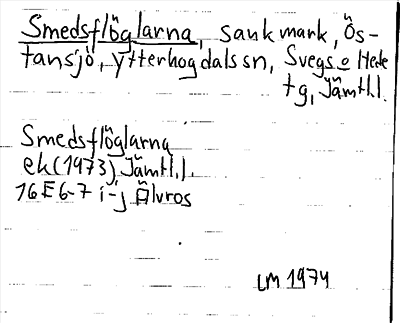 Smedsflöglarna, sankmark, Ös-
tansjö, Ytterhogdals sn, Svegs o Hede
tg, Jämtl.l.
Smedsflöglarna
ek (1973) Jämtl.l.
16E 6-7 i-j Älvros
LM 1974